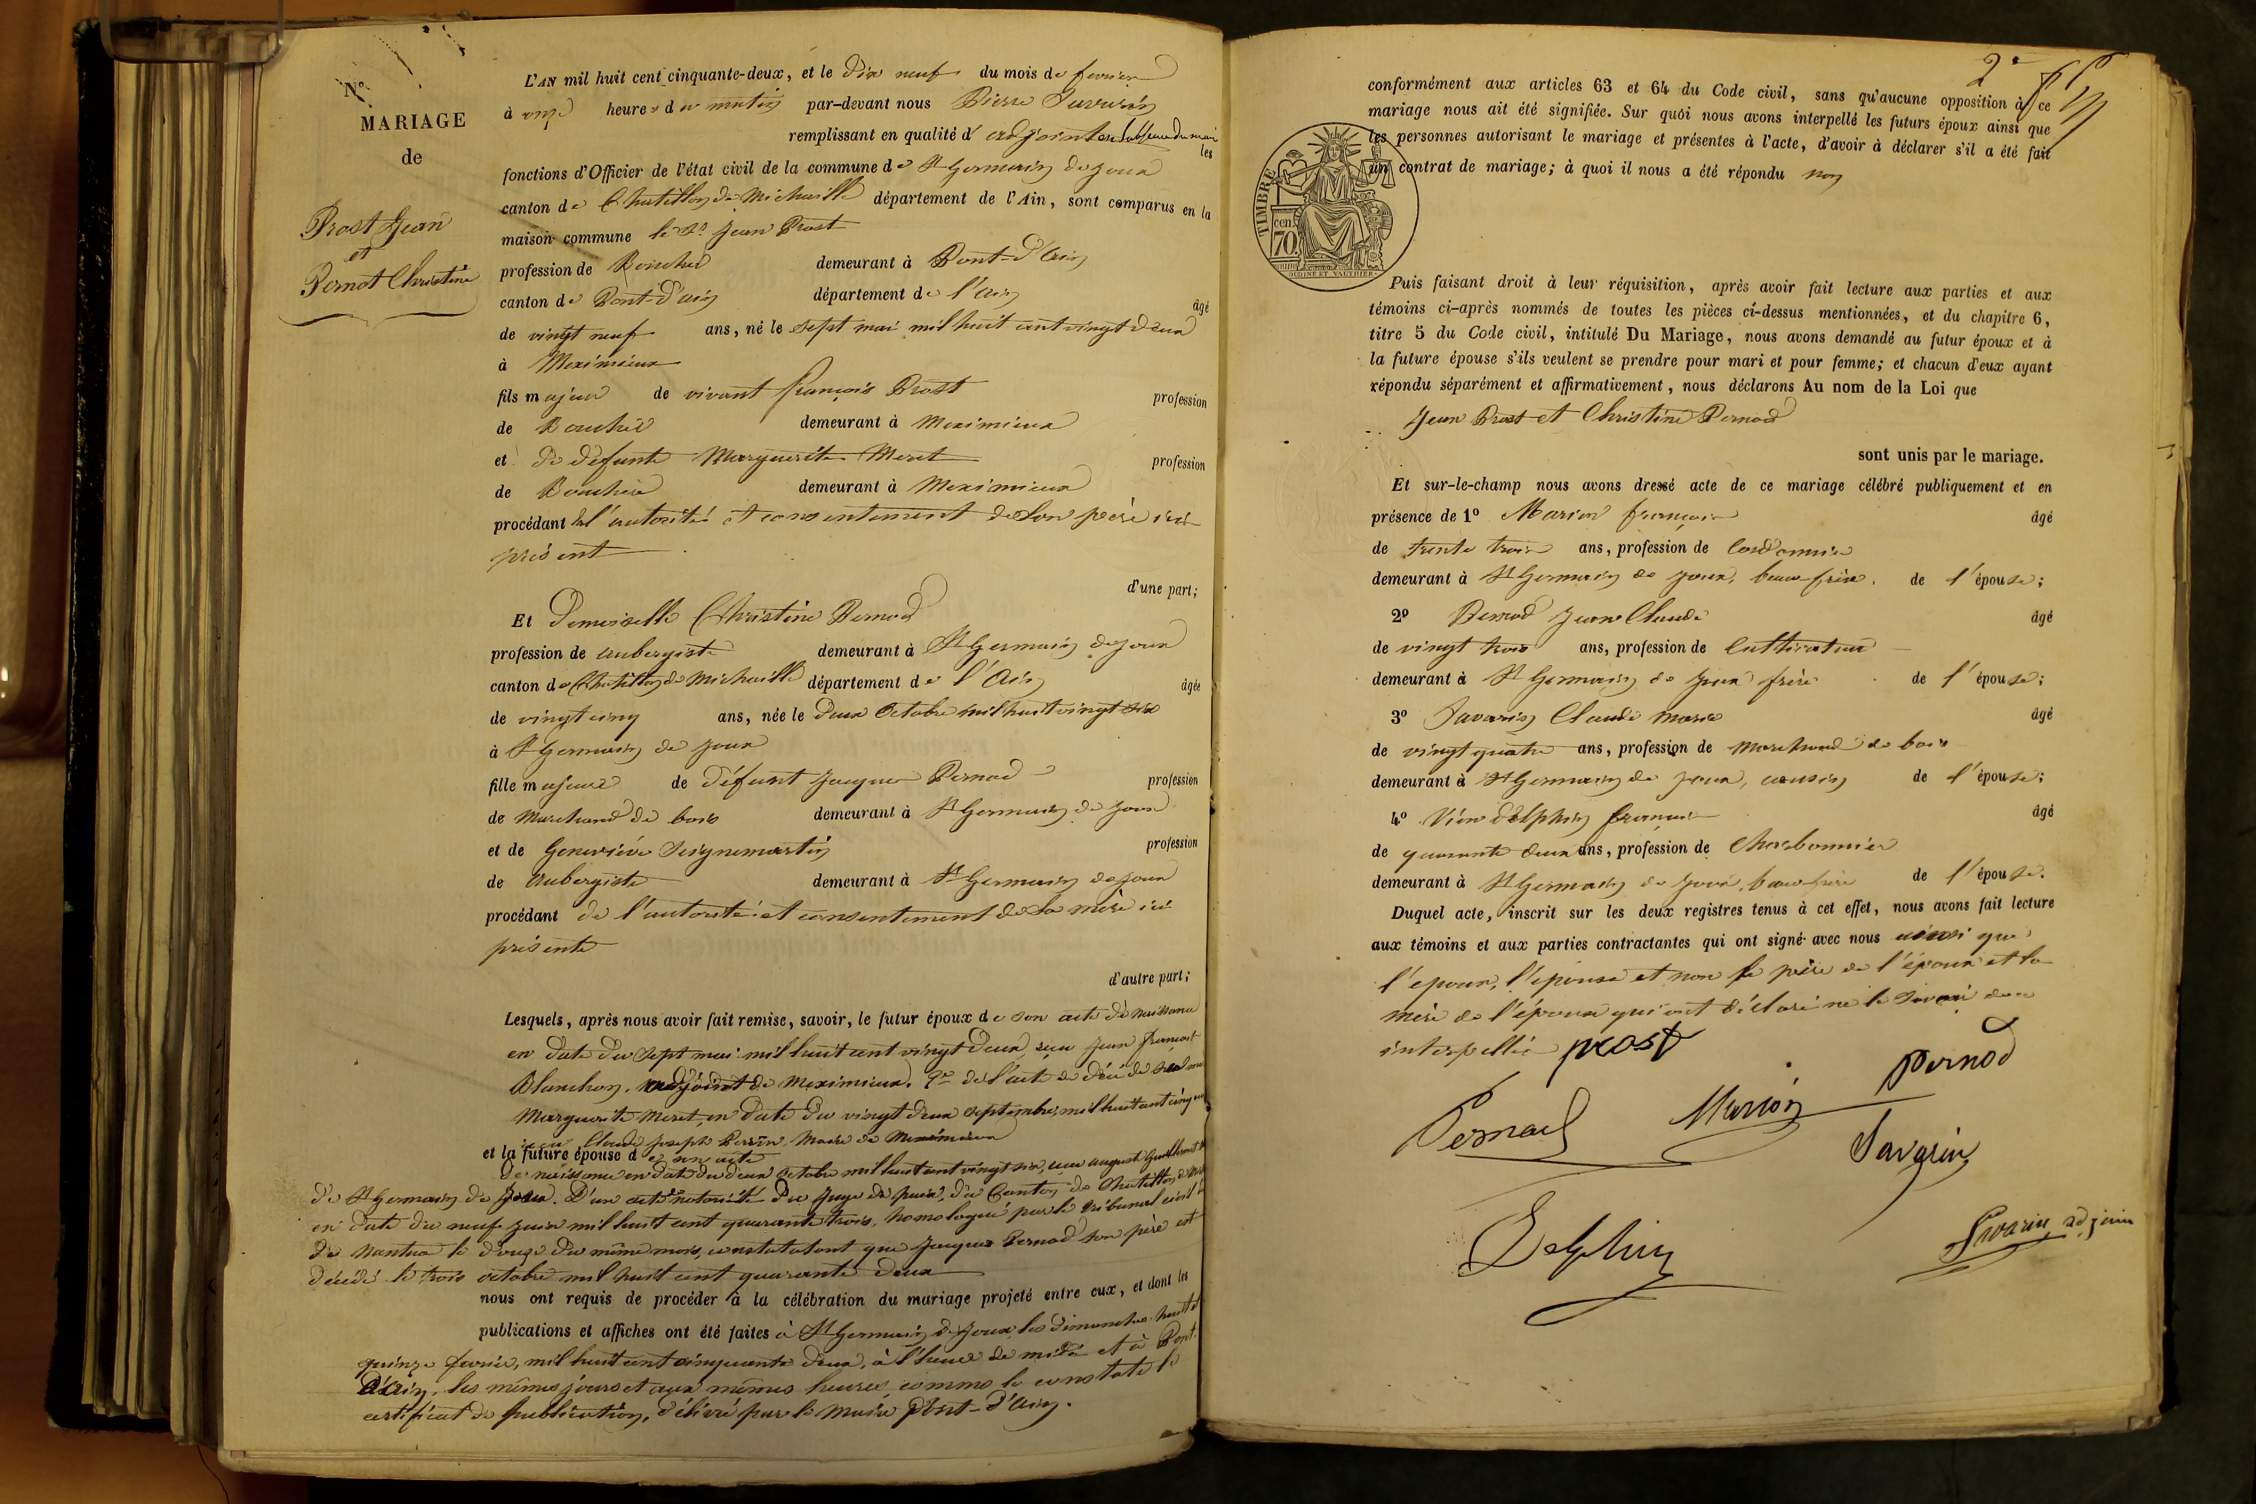 N°
MARIAGE
de
Prost Jean
et
Pernot Christine
L'AN mil huit cent cinquante-deux, et le dix neuf du mois de fevrier
à onze heures du matin par-devant nous Pierre Savarin
remplissant en qualité d'adjoint du maire les
fonctions d'Officier de l'état civil de la commune de St Germain de joux
canton de Chatillon de Michaille département de l'Ain, sont comparus en la
maison commune le Sr Jean Prost
profession de Boucher demeurant à Pont-d'Ain
canton de Pont-d'ain département de l'ain âgé
de vingt neuf ans, né le sept mai mil huit cent vingt deux
à Meximieux
fils majeur de vivant françois Prost profession
de Boucher demeurant à Meximieux
et de défunte Marguerite Meret profession
de Bouchère demeurant à Meximieux
procédant de l'autorité et consentement de Son père ici
présent
d'une part;
Et Demoiselle Christine Pernod
profession de aubergiste demeurant à St Germain de joux
canton de Chatillon de Michaille département de l'Ain âgée
de vingt cinq ans, née le deux Octobre mil huit vingt six
à St Germain de joux
fille majeure de défunt jacques Pernod profession
de Marchand de bois demeurant à St Germain de joux
et de Geneviève Seignemartin profession
de aubergiste demeurant à St Germain de joux
procédant de l'autorité et consentement de Sa mère ici
présente
d'autre part;
Lesquels, après nous avoir fait remise, savoir, le futur époux de son acte de naissance
en date du sept mai mil huit cent vingt deux, reçu jean françois
Blanchon, adjoint de Meximieux. 2° de l'acte de décé de sa mère
Marguerite Meret, en date du vingt deux septembre, mil huit cent
reçu Claude joseph Perrin Maire de Meximieux
et la future épouse de son acte
de naissance en date du deux octobre mil huit cent vingt six, reçu august
de St Germain de Joux. D'un acte notoriété du juge de paix, du Canton de Chatillon de
en date du neuf juin mil huit cent quarante trois, homologué par le tribunal civil
de Nantua le douze du même mois, constatatant que jacques Pernod son père est
décédé le trois octobre mil huit cent quarante deux
nous ont requis de procéder à la célébration du mariage projeté entre eux, et dont les
publications et affiches ont été faites à St Germain de Joux les dimanches huit et
quinze fevrier, mil huit cent cinquante deux, à l'heure de midi et à Pont
d'Ain, les mêmes jours et aux mêmes heures comme le constate le
certificat de publication, délivré par le Maire Pont-d'Ain.
2e
conformément aux articles 63 et 64 du Code civil, sans qu'aucune opposition à ce
mariage nous ait été signifiée. Sur quoi nous avons interpellé les futurs époux ainsi que
les personnes autorisant le mariage et présentes à l'acte, d'avoir à déclarer s'il a été fait
un contrat de mariage; à quoi il nous a été répondu non
TIMBRE
cen
70.
OUDINE ET VAUTHIER
Puis faisant droit à leur réquisition, après avoir fait lecture aux parties et aux
témoins ci-après nommés de toutes les pièces ci-dessus mentionnées, et du chapitre 6,
titre 5 du Code civil, intitulé Du Mariage, nous avons demandé au futur époux et à
la future épouse s'ils veulent se prendre pour mari et pour femme; et chacun d'eux ayant
répondu séparément et affirmativement, nous déclarons Au nom de la Loi que
Jean Prost et Christine Pernod
sont unis par le mariage.
Et sur-le-champ nous avons dressé acte de ce mariage célébré publiquement et en
présence de 1° Marion françois âgé
de trente trois ans, profession de Cordonnier
demeurant à St Germain de joux, beau-frère. de l'épouse;
2° Pernod Jean Claude âgé
de vingt trois ans, profession de Cultivateur
demeurant à St Germain de joux frère de l'épouse;
3° Savarin Claude marie âgé
de vingt quatre ans, profession de Marchand de bois
demeurant à St Germain de joux, cousin de l'épouse;
4° delphin françois âgé
de quarante deux ans, profession de Charbonnier
demeurant à St Germain de joux, beau frère de l'épouse.
Duquel acte, inscrit sur les deux registres tenus à cet effet, nous avons fait lecture
aux témoins et aux parties contractantes qui ont signé avec nous ainsi que
l'epoux, l'épouse et non le père de l'époux et la
mère de l'épouse qui ont déclaré ne le savoir de ce
interpellés
prost
Pernod
Marion
Pernod
Savarin
Delphin
Savarin adjoint